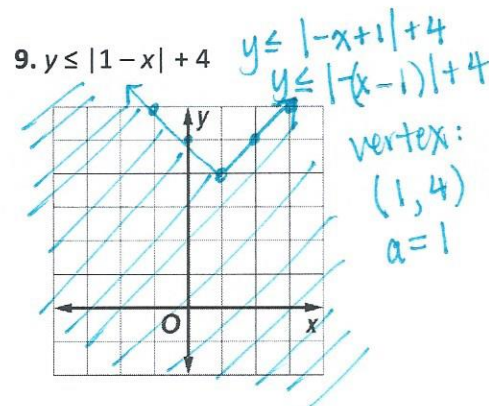 9. y ≤ |1 – x| + 4
y ≤ |-x+1|+4
y ≤ |-(x-1)|+4
vertex:
(1,4)
a=1
y
O
x